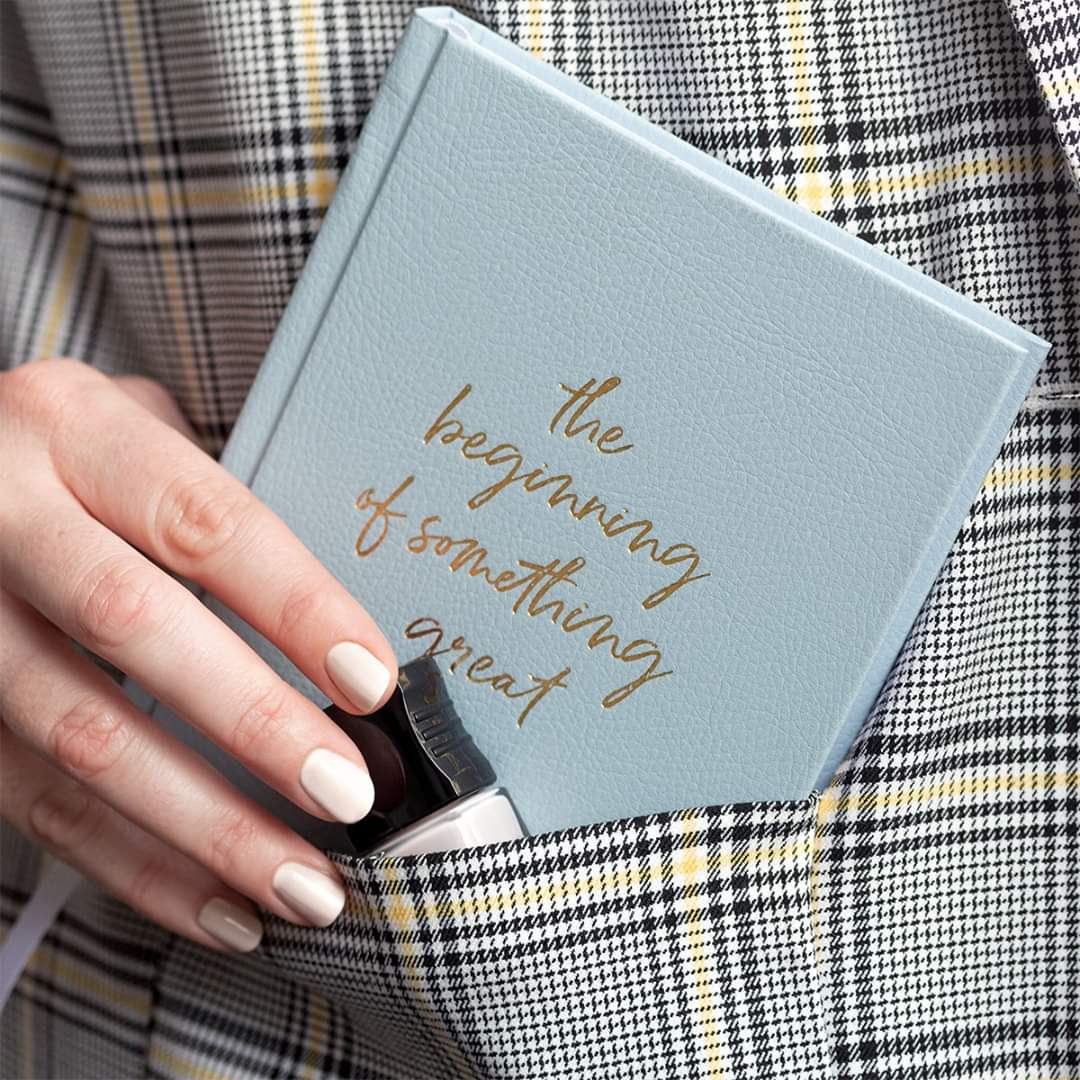 the
beginning
of something
great